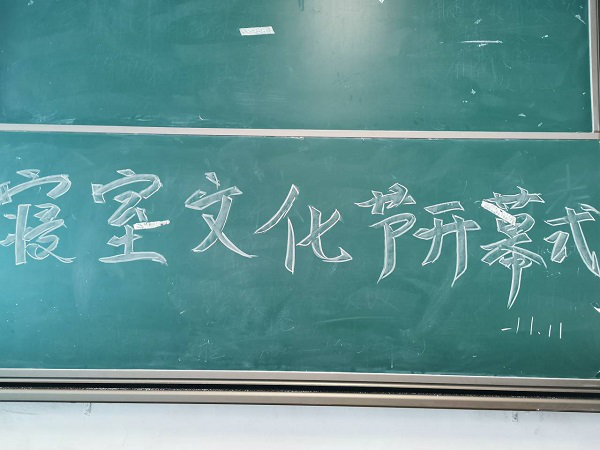 寝室文化节开幕式
-11.11